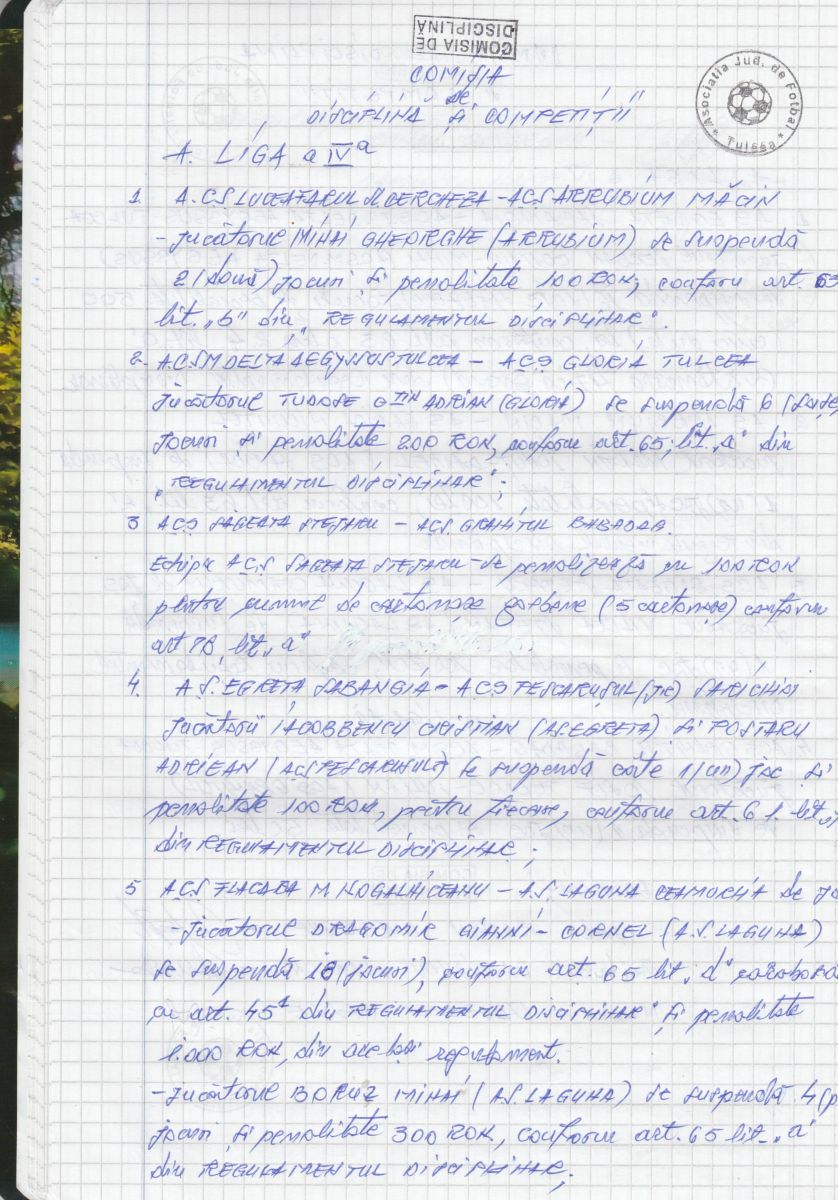 COMISIA DE
DISCIPLINĂ
Asociatia Jud. de Fotbal
* Tulcea *
COMISIA
de
DISCIPLINĂ ȘI COMPETIȚII
A. LIGA a IV a
1. A.C.S LUCEAFARUL SL CERCHEZA - ACS ARRUBIUM MĂCIN
- Jucătorul MIHAI GHEORGHE (ARRUBIUM) se suspendă
2 (două) jocuri și penalitate 100 RON, conform art. 63
lit. „b" din „REGULAMENTUL DISCIPLINAR".
2. ACSM DELTA AEGYSSUS TULCEA - ACS GLORIA TULCEA
Jucătorul TUDOSE C-TIN ADRIAN (GLORIA) se suspendă 6 (șase)
jocuri și penalitate 200 RON, conform art. 65, lit. „a" din
„REGULAMENTUL DISCIPLINAR";
3 ACS SĂGEATA STEJARU - ACS. GRANITUL BABADAG.
Echipa A.C.S SĂGEATA STEJARU - se penalizează cu 100 RON
pentru cumul de cartonașe galbene (5 cartonașe) conform
art 78, lit. „a"
4. A S. EGRETA SABANGIA - ACS PESCARUSUL (JR) SARICHIOI
Jucătorii IACOBBENCU CRISTIAN (AS.EGRETA) și POSTARU
ADRIEAN (ACS PESCARUSUL) se suspendă câte 1 (un) joc și
penalitate 100 RON, pentru fiecare, conform art. 61. lit.
din REGULAMENTUL DISCIPLINAR;
5 ACS FLACARA M KOGALNICEANU - A.S. LAGUNA CEAMURLIA de
- Jucătorul DRAGOMIR GIANNI - CORNEL (A.S. LAGUNA)
se suspendă 18 (jocuri), conform art. 65 lit. „d" coroborat
cu art. 45 din REGULAMENTUL DISCIPLINAR" și penalitate
1.000 RON, din același regulament.
- Jucătorul BORUZ MIHAI (AS. LAGUNA) se suspendă 4
jocuri și penalitate 300 RON, conform art. 65 lit. „a"
din REGULAMENTUL DISCIPLINAR;